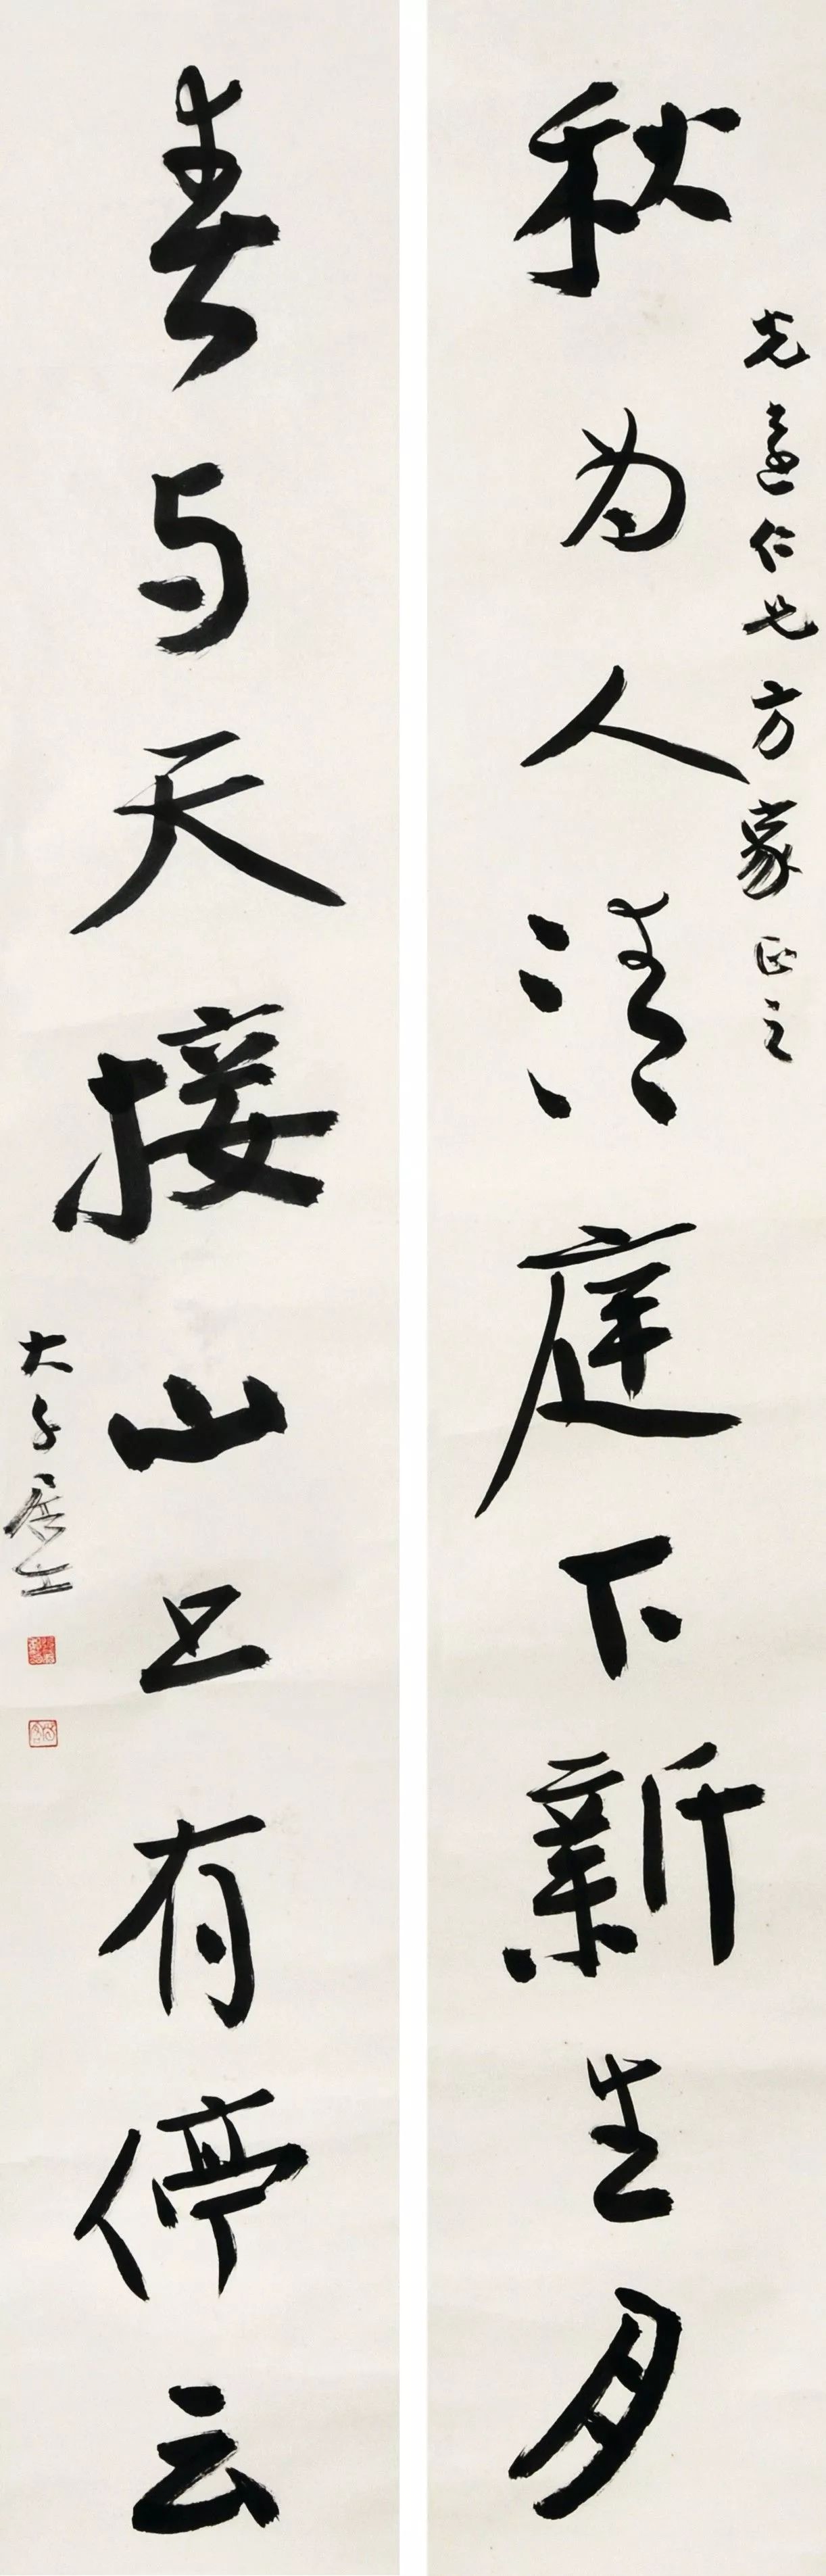 光远仁兄方家正之
秋为人清庭下新生月
春与天接山上有停云
大千居士